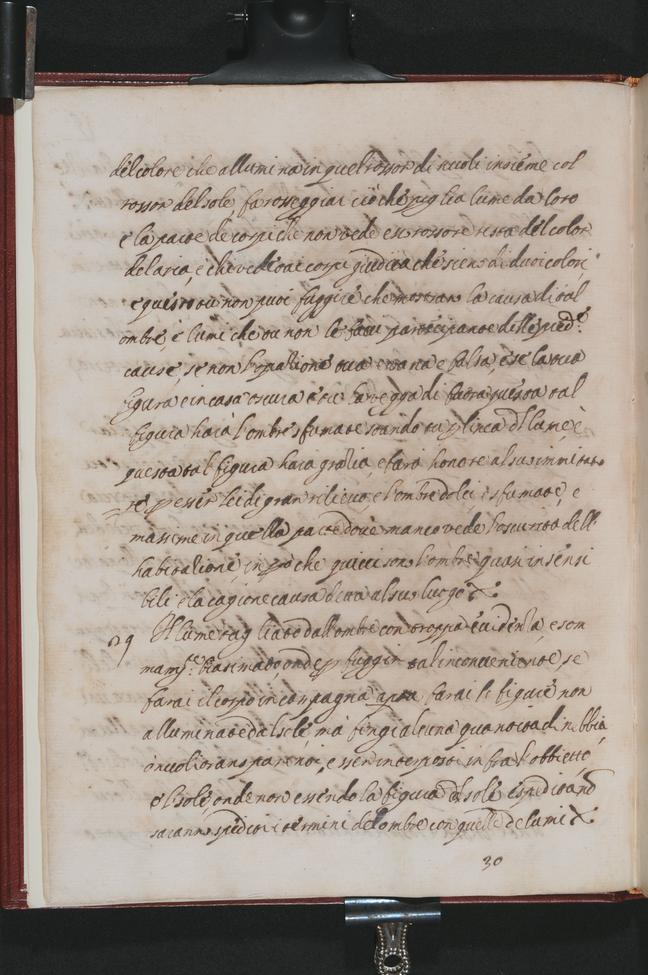 del colore che allumina in quel rossor di nuoli insieme col
rossor del sole fa rosseggiar ciò che piglia lume da loro
e la parte de corpi che non vede esso rossore resta del color
del aria, e chi vede tai corpi giudica che sieno di duoi colori
e questo tu non puoi fuggire che mostrato la causa di tal
ombre, e lumi che tu non le facci participante delle pred.e
cause, se non l'opatione tua e vana e falsa, e se la tua
figura e in casa oscura e tu la vegga di fuora questa tal
figura hara l'ombre sfumate stando tu p linea del lume, e
questa tal figura hara gratia, e fara honore al suo immitato
=re per esser lei di gran rilievo, e l'ombre dolci, e sfumate, e
massime in quella parte dove manco vede l'oscurita dell
habitatione, in pero che quivi sono l'ombre quasi insensi
bili e la cagione causa detta al suo luogo
29 Il lume tagliato dall'ombre con troppa evidentia, e som
mam.te biasimato, onde p fuggir tal inconveniente, se
farai il corpo in campagna aperta, farai le figure non
alluminate dal sole, ma fingi alcuna quantita di nibbia,
o nuoli transparenti, essere interposti in fra l'obbietto
e'l sole, onde non essendo la figura del sole espedita nō
saranno spediti i termini de l'ombre con quelle de lumi
30